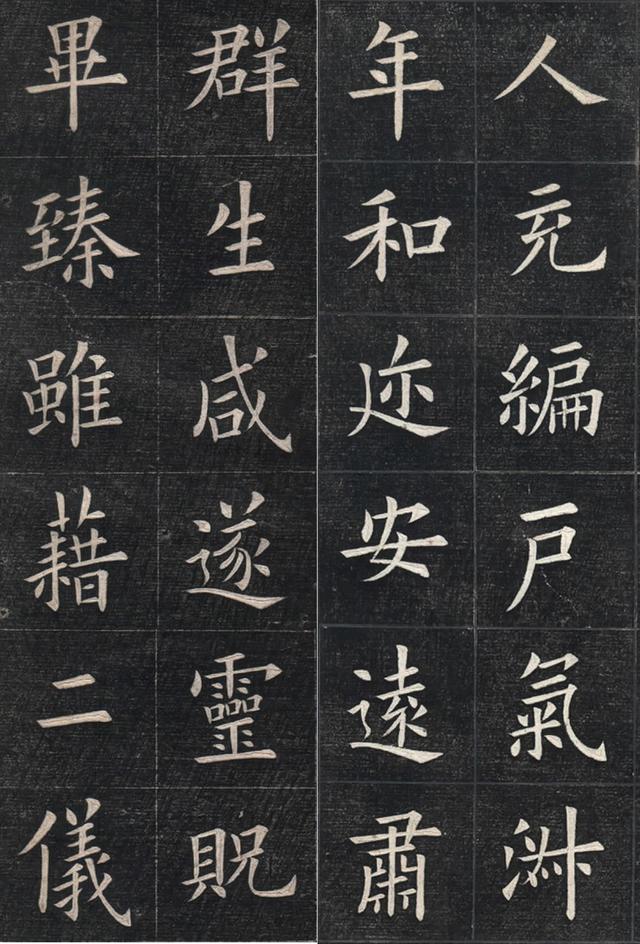 人充編戸氣淋
年和迩安遠肅
群生咸遂靈貺
畢臻雖藉二儀